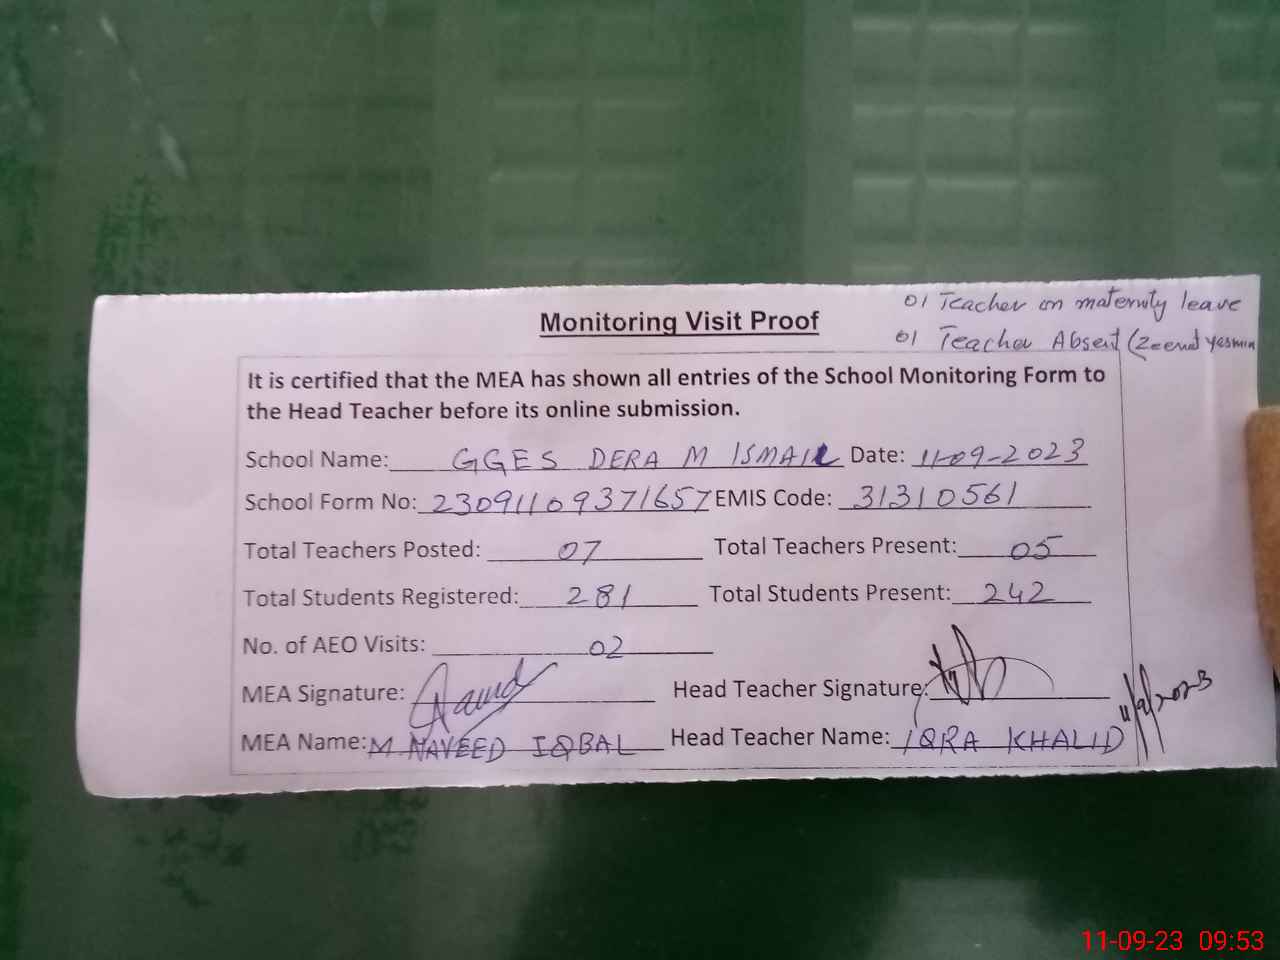 01 Teacher on maternity leave
Monitoring Visit Proof
01 Teacher Absent (Zeenat Yasmin
It is certified that the MEA has shown all entries of the School Monitoring Form to
the Head Teacher before its online submission.
School Name: GGES DERA M ISMAIL Date: 11-09-2023
School Form No: 23091109371657 EMIS Code: 31310561
Total Teachers Posted: 07 Total Teachers Present: 05
Total Students Registered: 281 Total Students Present: 242
No. of AEO Visits: 02
MEA Signature: Head Teacher Signature:
11/9/2023
MEA Name: M NAVEED IQBAL Head Teacher Name: IQRA KHALID
11-09-23 09:53